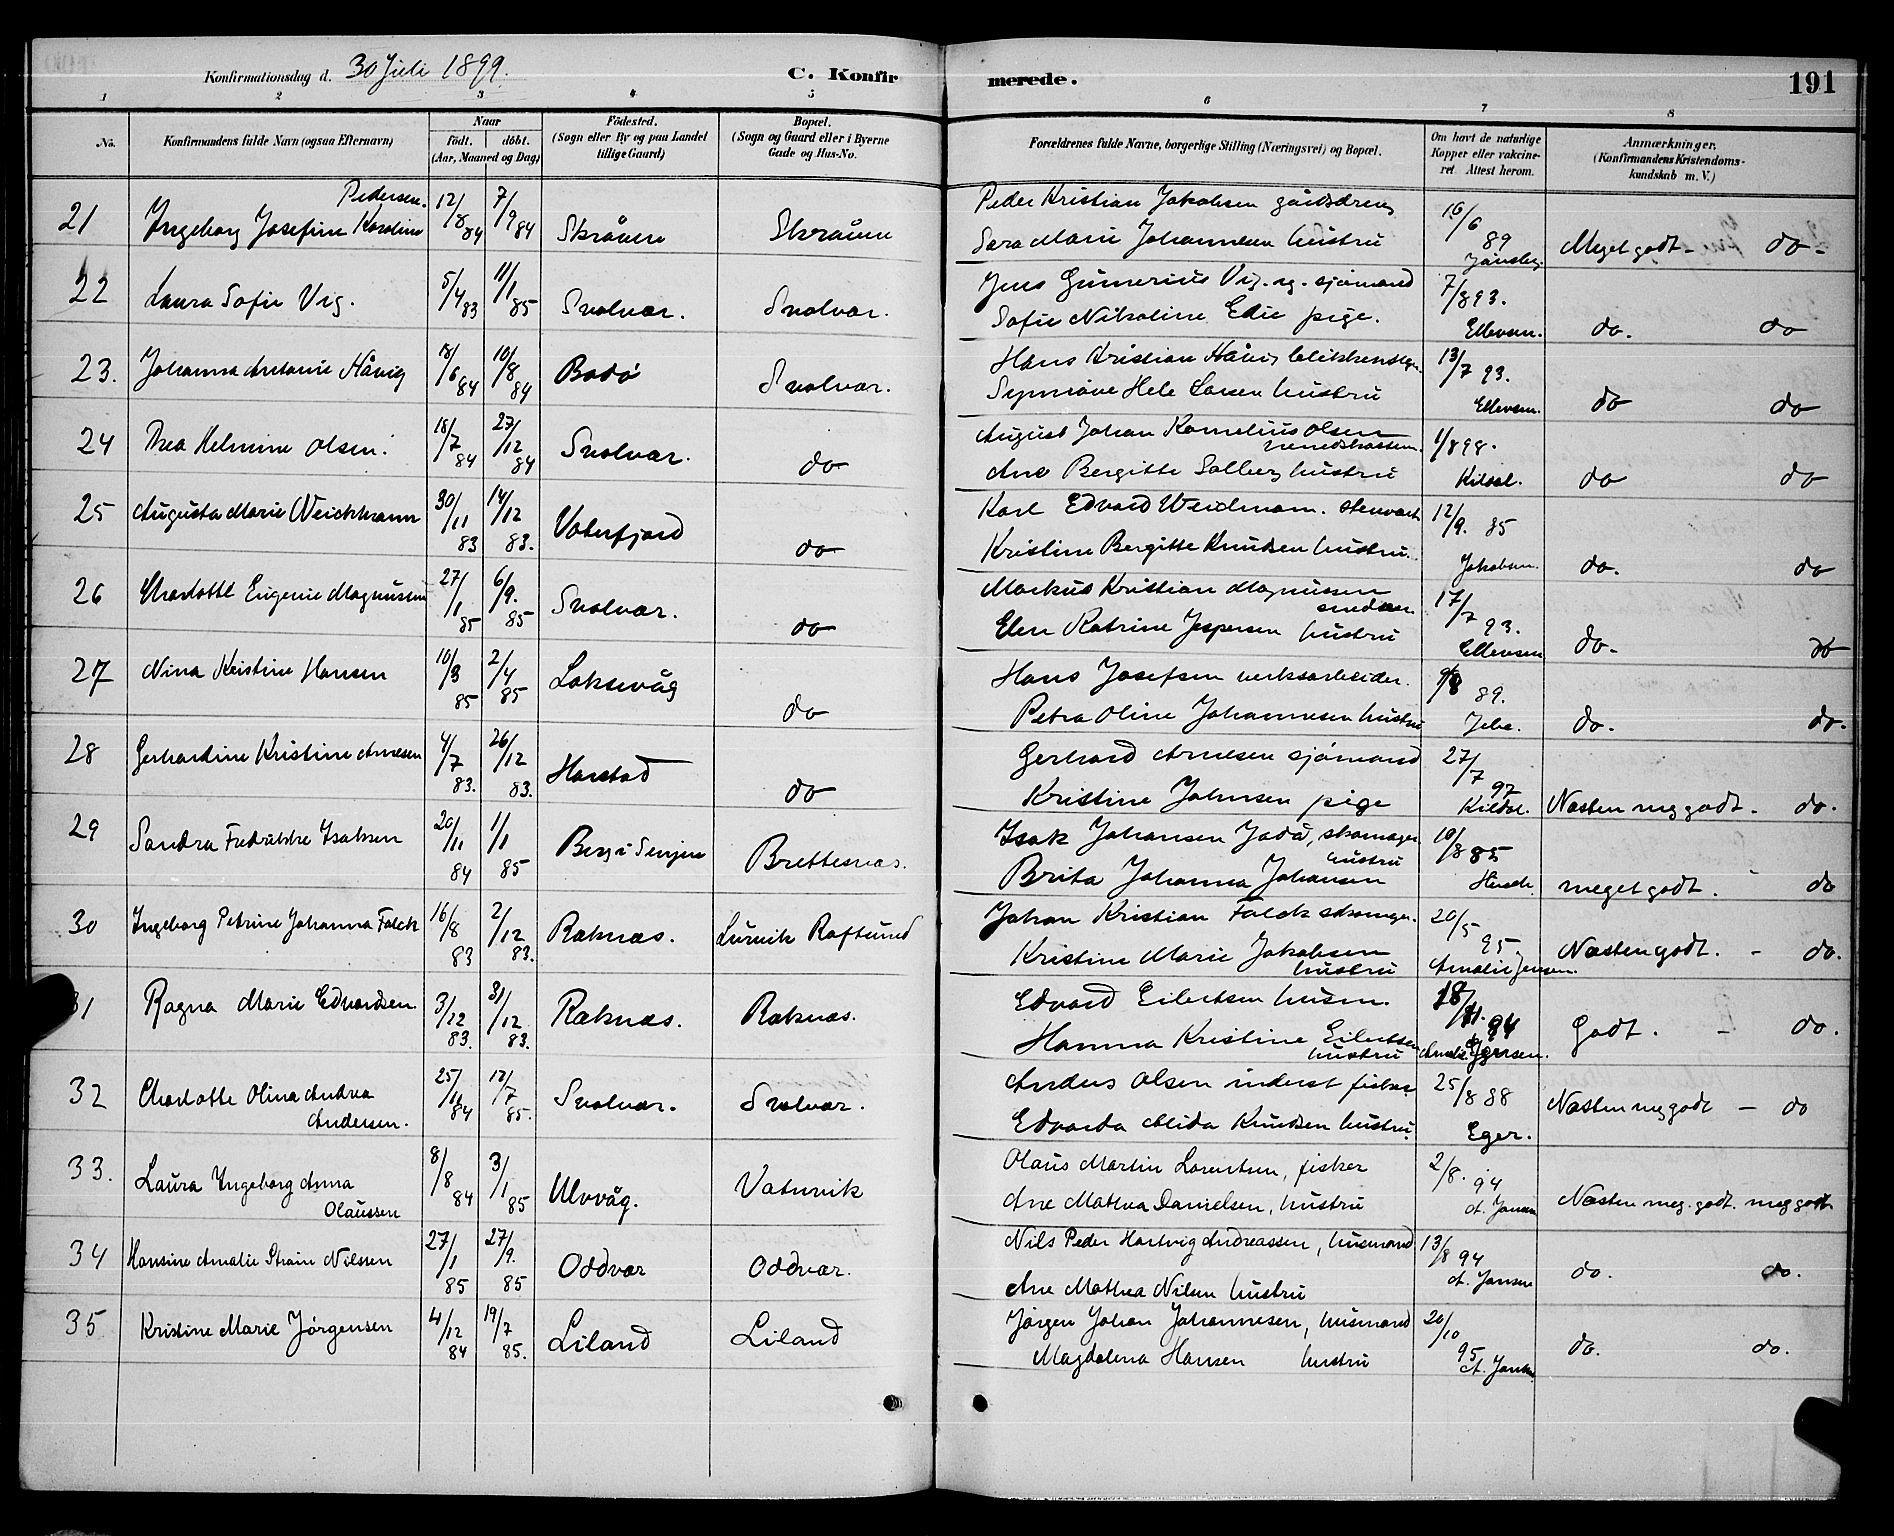 Konfirmationsdag d. 30 Juli 1899.
C. Konfirmerede.
191
1 2 3 4 5 6 7 8
No.
Konfirmandens fulde Navn (ogsaa Efternavn)
Naar
födt. döbt.
(Aar, Maaned og Dag)
Födested.
(Sogn eller By og paa Landet
tillige Gaard)
Bopæl.
(Sogn og Gaard eller i Byerne
Gade og Hus-No.
Forældrenes fulde Navne, borgerlige Stilling (Næringsvei) og Bopæl.
Om havt de naturlige
Kopper eller vakcine-
ret. Attest herom.
Anmærkninger.
(Konfirmandens Kristendoms-
kundskab m. V.)
21 Ingeborg Josefine Karoline Pedersen. 12/8 84 7/9 84 Skråven Skråven
Peder Kristian Jakobsen gårdsdreng
Sara Marie Johannesen hustru 16/6 89 Meget godt - do -
22 Laura Sofie Vig. 5/4 83 11/1 85 Svolvær. Svolvær.
Jens Gumerius Vig. ug. sjømand
Sofie Nikoline Edie pige. 7/8 93. Ellevsen. do. do
23. Johanna Antonie Håvig 18/6 84 10/8 84 Bodö Svolvær.
Hans Kristian Håvig blikkenslager
Synnöve Hele Larsen hustru 13/7 93. Ellevsen. do do
24 Thea Helmine Olsen. 18/7 84 27/12 84 Svolvær. do
August Johan Kornelius Olsen
Ane Bergitte Solberg hustru 1/8 98. Kildal. do do
25 Augusta Marie Weichmann 30/11 83 14/12 83. Vaterfjord do
Karl Edvard Weidmann. stenvart
Kristine Bergitte Knudsen hustru. 12/9. 85 Jakobsen. do. do
26 Charlotte Eugenie Magnussen 27/1 85 6/9. 85 Svolvær. do
Markus Kristian Magnussen
Elen Katrine Jespersen hustru 17/7 93. Ellevsen do. do
27 Nina Kristine Hansen 10/3 85 2/4 85 Laksevåg do
Hans Josefsen verksarbeider.
Petra Oline Johannesen hustru 89. do. do.
28 Gerhardine Kristine Arnesen 4/7 83. 26/12 83. Harstad do
Gerhard Arnesen sjömand
Kristine Johnsen pige 27/7 97 Kildal. Næsten meg godt. do.
29 Sandra Fredrikke Isaksen 20/11 84 1/1 85 Berg i Senjen Brettesnæs.
Isak Johansen Jådå, skomager
Brita Johanna Johansen hustru 10/8 85 meget godt. - do
30 Ingeborg Petrine Johanna Falck 16/8 83 2/12 83. Raknæs. Lurvik Raftsund
Johan Kristian Falck skomager.
Kristine Marie Jakobsen hustru 20/5 95 Amalie Jensen. Næsten godt. - do.
31 Ragna Marie Edvardsen 3/12 83. 31/12 83. Raknæs. Raknæs.
Edvard Eilertsen husm.
Hanna Kristine Eilertsen hustru 18/11. 94 Godt. - do.
32 Charlotte Olina Andrea Andersen. 25/11 84 12/7 85. Svolvær. Svolvær.
Anders Olsen inderst fisker
Edvarda Alida Knudsen hustru. 25/8 88 Eger. Næsten meg godt - do
33. Laura Ingeborg Anna Olaussen 8/8 84 3/1 85 Ulvvåg. Vatnvik
Olaus Martin Lorentsen, fisker
Ane Mathea Danielsen, hustru 2/8. 94 A. Jansen Næsten meg. godt. meg godt
34 Hansine Amalie Strøm Nilssen 27/1 85 27/9. 85 Oddvær Oddvær.
Nils Peder Hartvig Andreassen, husmand
Ane Mathea Nilsen hustru 13/8 94 A. Jansen do. do.
35 Kristine Marie Jörgensen 4/12 84 19/7 85. Liland Liland
Jörgen Johan Johannesen, husmand
Magdalena Hansen hustru 20/10 95 A. Jansen do. do.